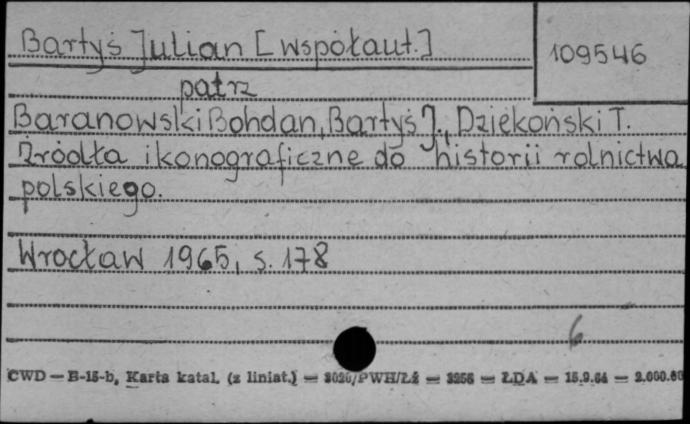 Bartyś Julian [współaut.]
109546
patrz
Baranowski Bohdan, Bartyś J., Dziekoński T.
Źródła ikonograficzne do historii rolnictwa
polskiego.
Wrocław 1965, s. 178
6
CWD — B-15-b, Karta katal. (z liniat.) — /PWH/Łź — — ŁDA — 15.9.64 —